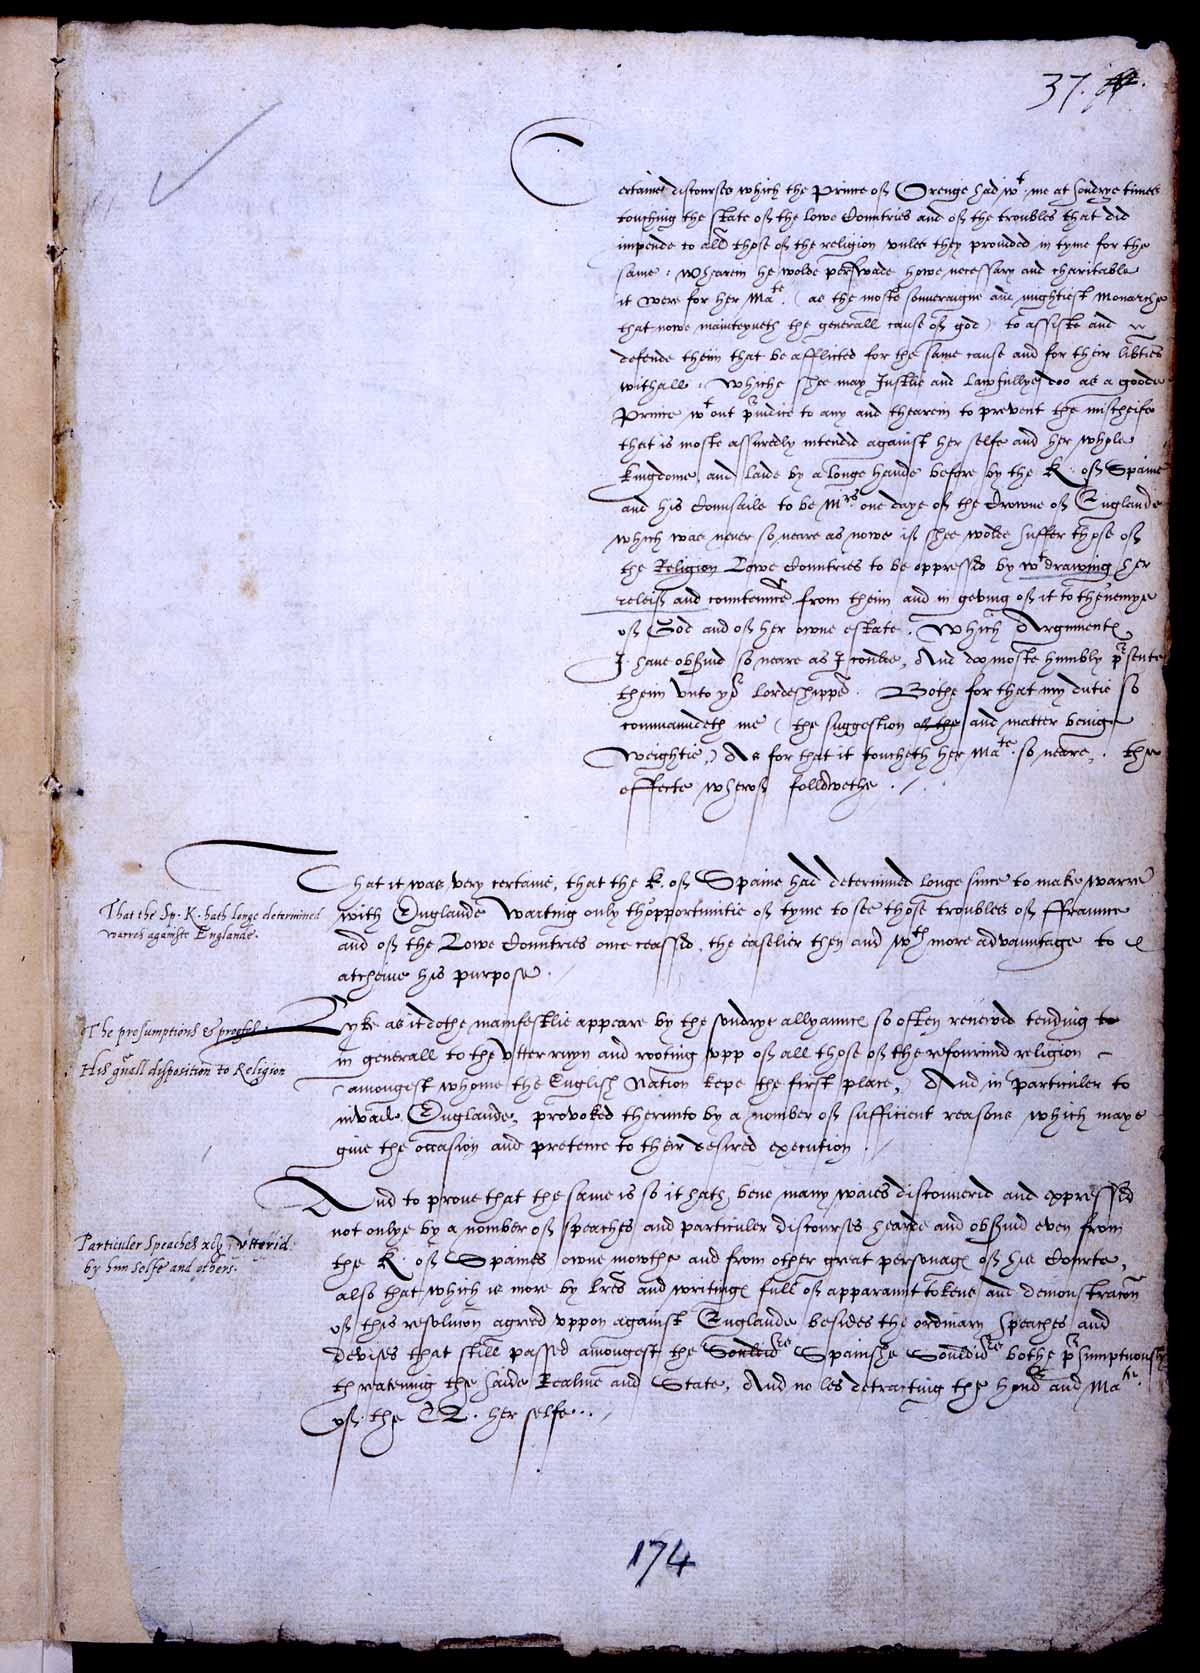 37.
Certaine discourses which the Prince of Orenge had wt me at sondrye times
touching the state of the Lowe Countries and of the troubles that did
impende to all those of the religion vnles they provided in tyme for the
same. Wherein he wolde perswade howe necessary and charitable
it were for her Mate. (as the moste souueraigne and mightiest Monarche
that nowe mainteyneth the generall cause of god) to assiste and
defende theim that be afflicted for the same cause and for their libties
withall. Whiche shee may Justlie and Lawfullye doo as a goode
Prince wtout preiudice to any and thearein to prevent the mischeife
that is moste assuredly intendid against her selfe and her whole
kingdome, and laide by a longe hande before by the K. of Spaine
and his Counsaile to be Mrs one daye of the Crowne of Englande
which was never so neare as nowe if shee wolde suffer those of
the Religion Lowe Countries to be oppressed by wtdrawing her
releif and countennce from theim and in geving of it to thennemye
of God and of her owne estate. Which Argumentes
I have obserud so neare as I coulde, And doo moste humbly psente
theim vnto yor Lordeshippes. Bothe for that my dutie so
commaundeth me (the suggestion of the and matter beinge
Weightie,) As for that it toucheth her Mate. so neare, the
effecte wherof followethe.
That it was very certaine, that the K. of Spaine had determined longe since to make warre
That the Sp. K. hath longe determined
warres againste Englande.
with Englande Waiting only thopportunitie of tyme to see those troubles of ffraunce
and of the Lowe Countries once ceassed, the easelier then and wth more advauntage to
atcheiue his purpose.
The presumptions & proofes.
His gnall disposition to Religion
Lyke as it dothe manifestlie appeare by the sondrye allyaunces so often renewid tending to
in generall to the vtter ruyn and rooting vpp of all those of the refourmid religion
amongest whome the English Nation kepe the first place, And in particuler to
invade Englande, provoked therunto by a nomber of sufficient reasons which maye
give the occasion and pretence to their desired execution.
Particuler Speaches vttered
by him selfe and others.
And to prove that the same is so it hath bene many waies discouuerid and expressed
not onlye by a nomber of speaches and particuler discourses hearde and obserud even from
the K. of Spaines owne mowthe and from other great personages of his Courte,
also that which is more by lres and writinges full of apparaunt tokens and demonstracon
of this resolution agreed vppon against Englande besides the ordinary speaches and
devises that still passed amongest the Souldid Spainishe Souldiers bothe psumptuously
threatening the saide Realme and State, And no les detracting the honor and Mate.
of the Q. her selfe.
174